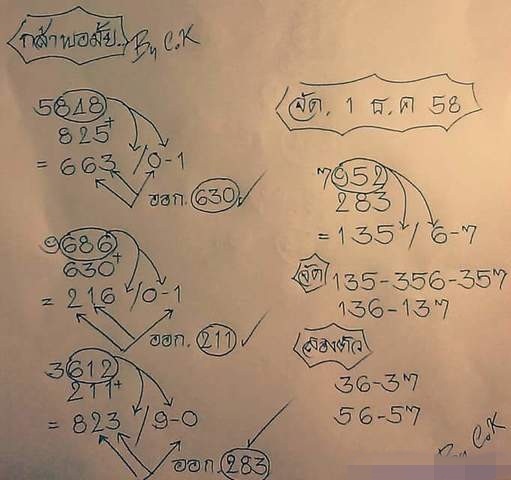 กล้าพอมั้ย.. By C.K
5848
825+
= 663 / 0-1
ออก. 630
9686
630+
= 216 / 0-1
ออก. 211
3612
211+
= 823 / 9-0
ออก. 283
จัด. 1 ธ.ค 58
7952
283
= 135 / 6-7
จัด 135-356-357
136-137
สองตัว
36-37
56-57
By C.K